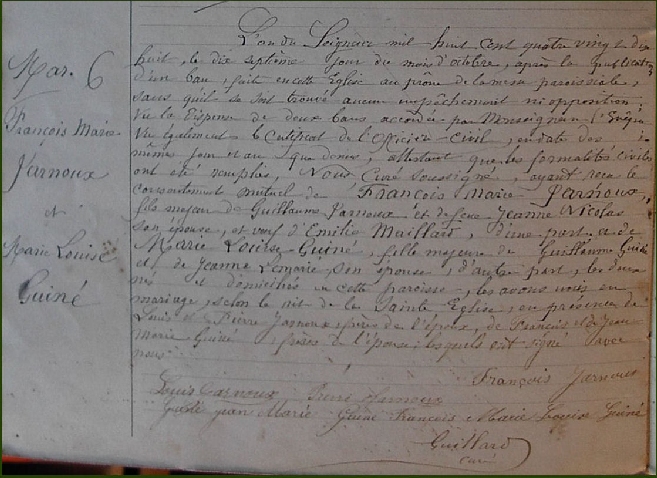 Mar. 6
François Marie
Jarnoux
et
Marie Louise
Guiné
L'an du Seigneur mil huit cent quatre vingt dix
huit, le dix septième jour du mois d'octobre, après la publication
d'un ban, fait en cette Eglise au prône de la messe paroissiale,
sans qu'il se soit trouvé aucun empêchement ni opposition;
Vu la dispense de deux bans accordée par Monseigneur l'Evêque
Vu également le certificat de l'Officier civil, en date des
même jour et an que dessus, attestant que les formalités civiles
ont été remplies, Nous Curé soussigné, ayant reçu le
consentement mutuel de François Marie Jarnoux,
fils majeur de Guillaume Jarnoux et de feue Jeanne Nicolas
son épouse, et veuf d'Emilie Maillard, d'une part et de
Marie Louise Guiné, fille majeure de Guillaume Guiné
et de Jeanne Lemarié son épouse, d'autre part, les deux
nés et domiciliés en cette paroisse, les avons unis en
mariage, selon le rit de la Sainte Eglise, en présence de
Louis et Pierre Jarnoux frères de l'époux, de François et de Jean
Marie Guiné, frères de l'épouse lesquels ont signé avec
nous.
François Jarnoux
Louis Jarnoux Pierre Jarnoux
Guiné Jean Marie Guiné François Marie Louise Guiné
Guillard
curé